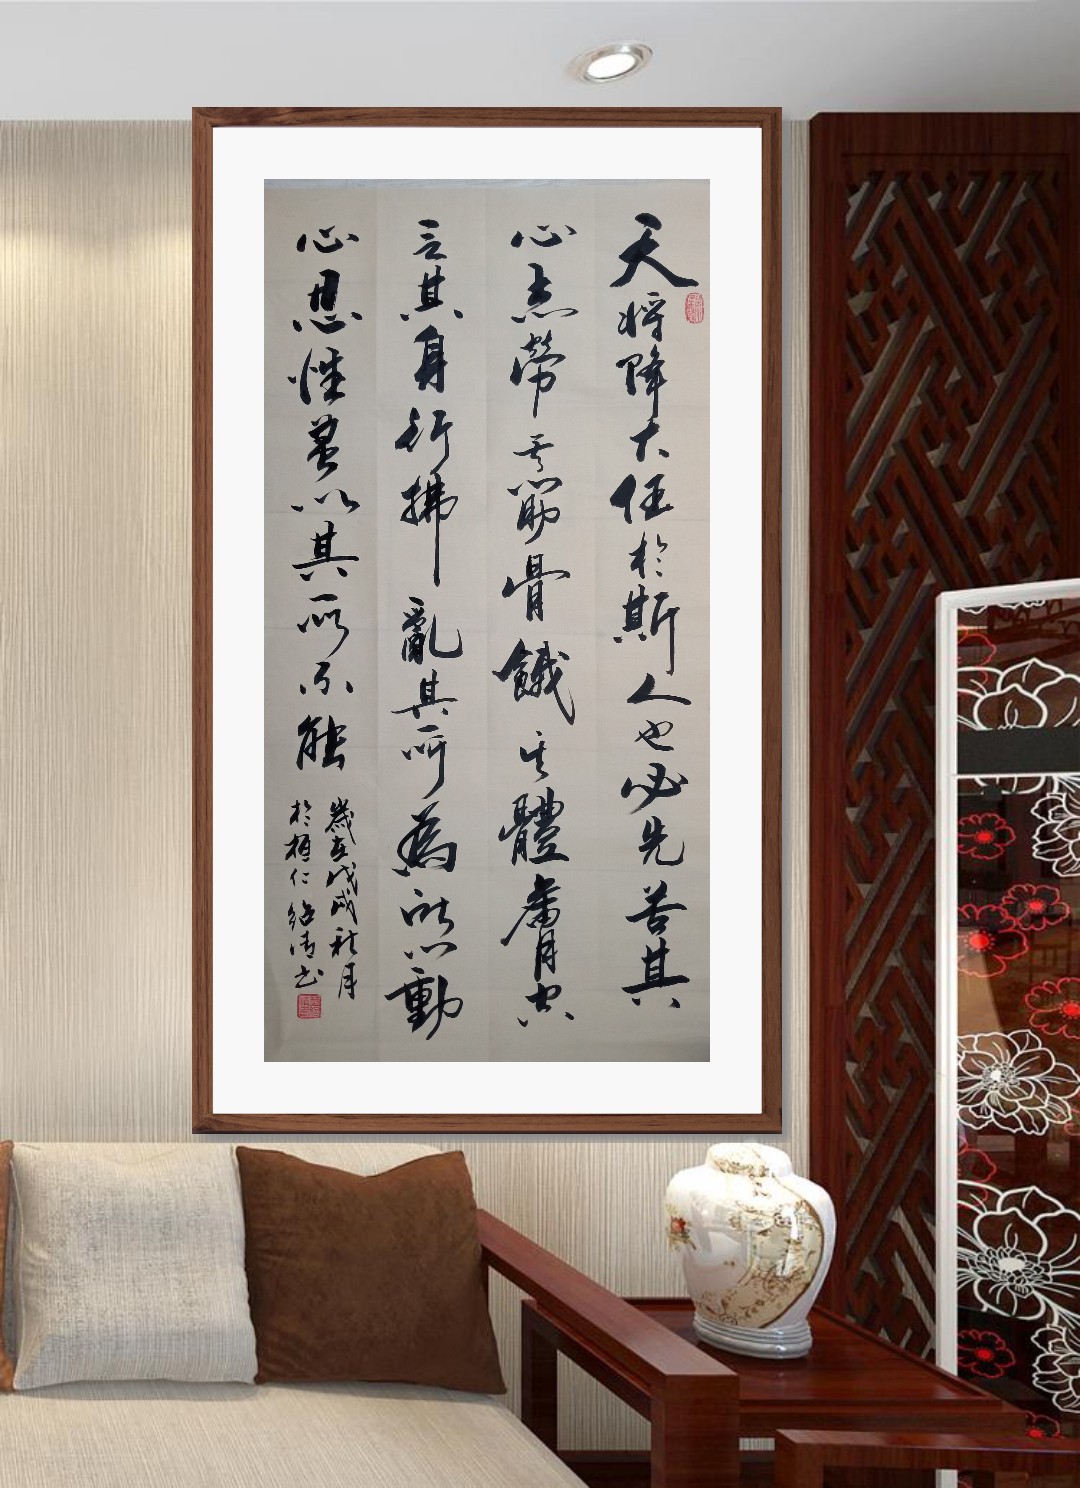 天将降大任於斯人也必先苦其
心志勞其筋骨餓其體膚空
乏其身行拂亂其所為所以動
心忍性曾以其所不能
歲在戊戌秋月
於桓仁绍清书